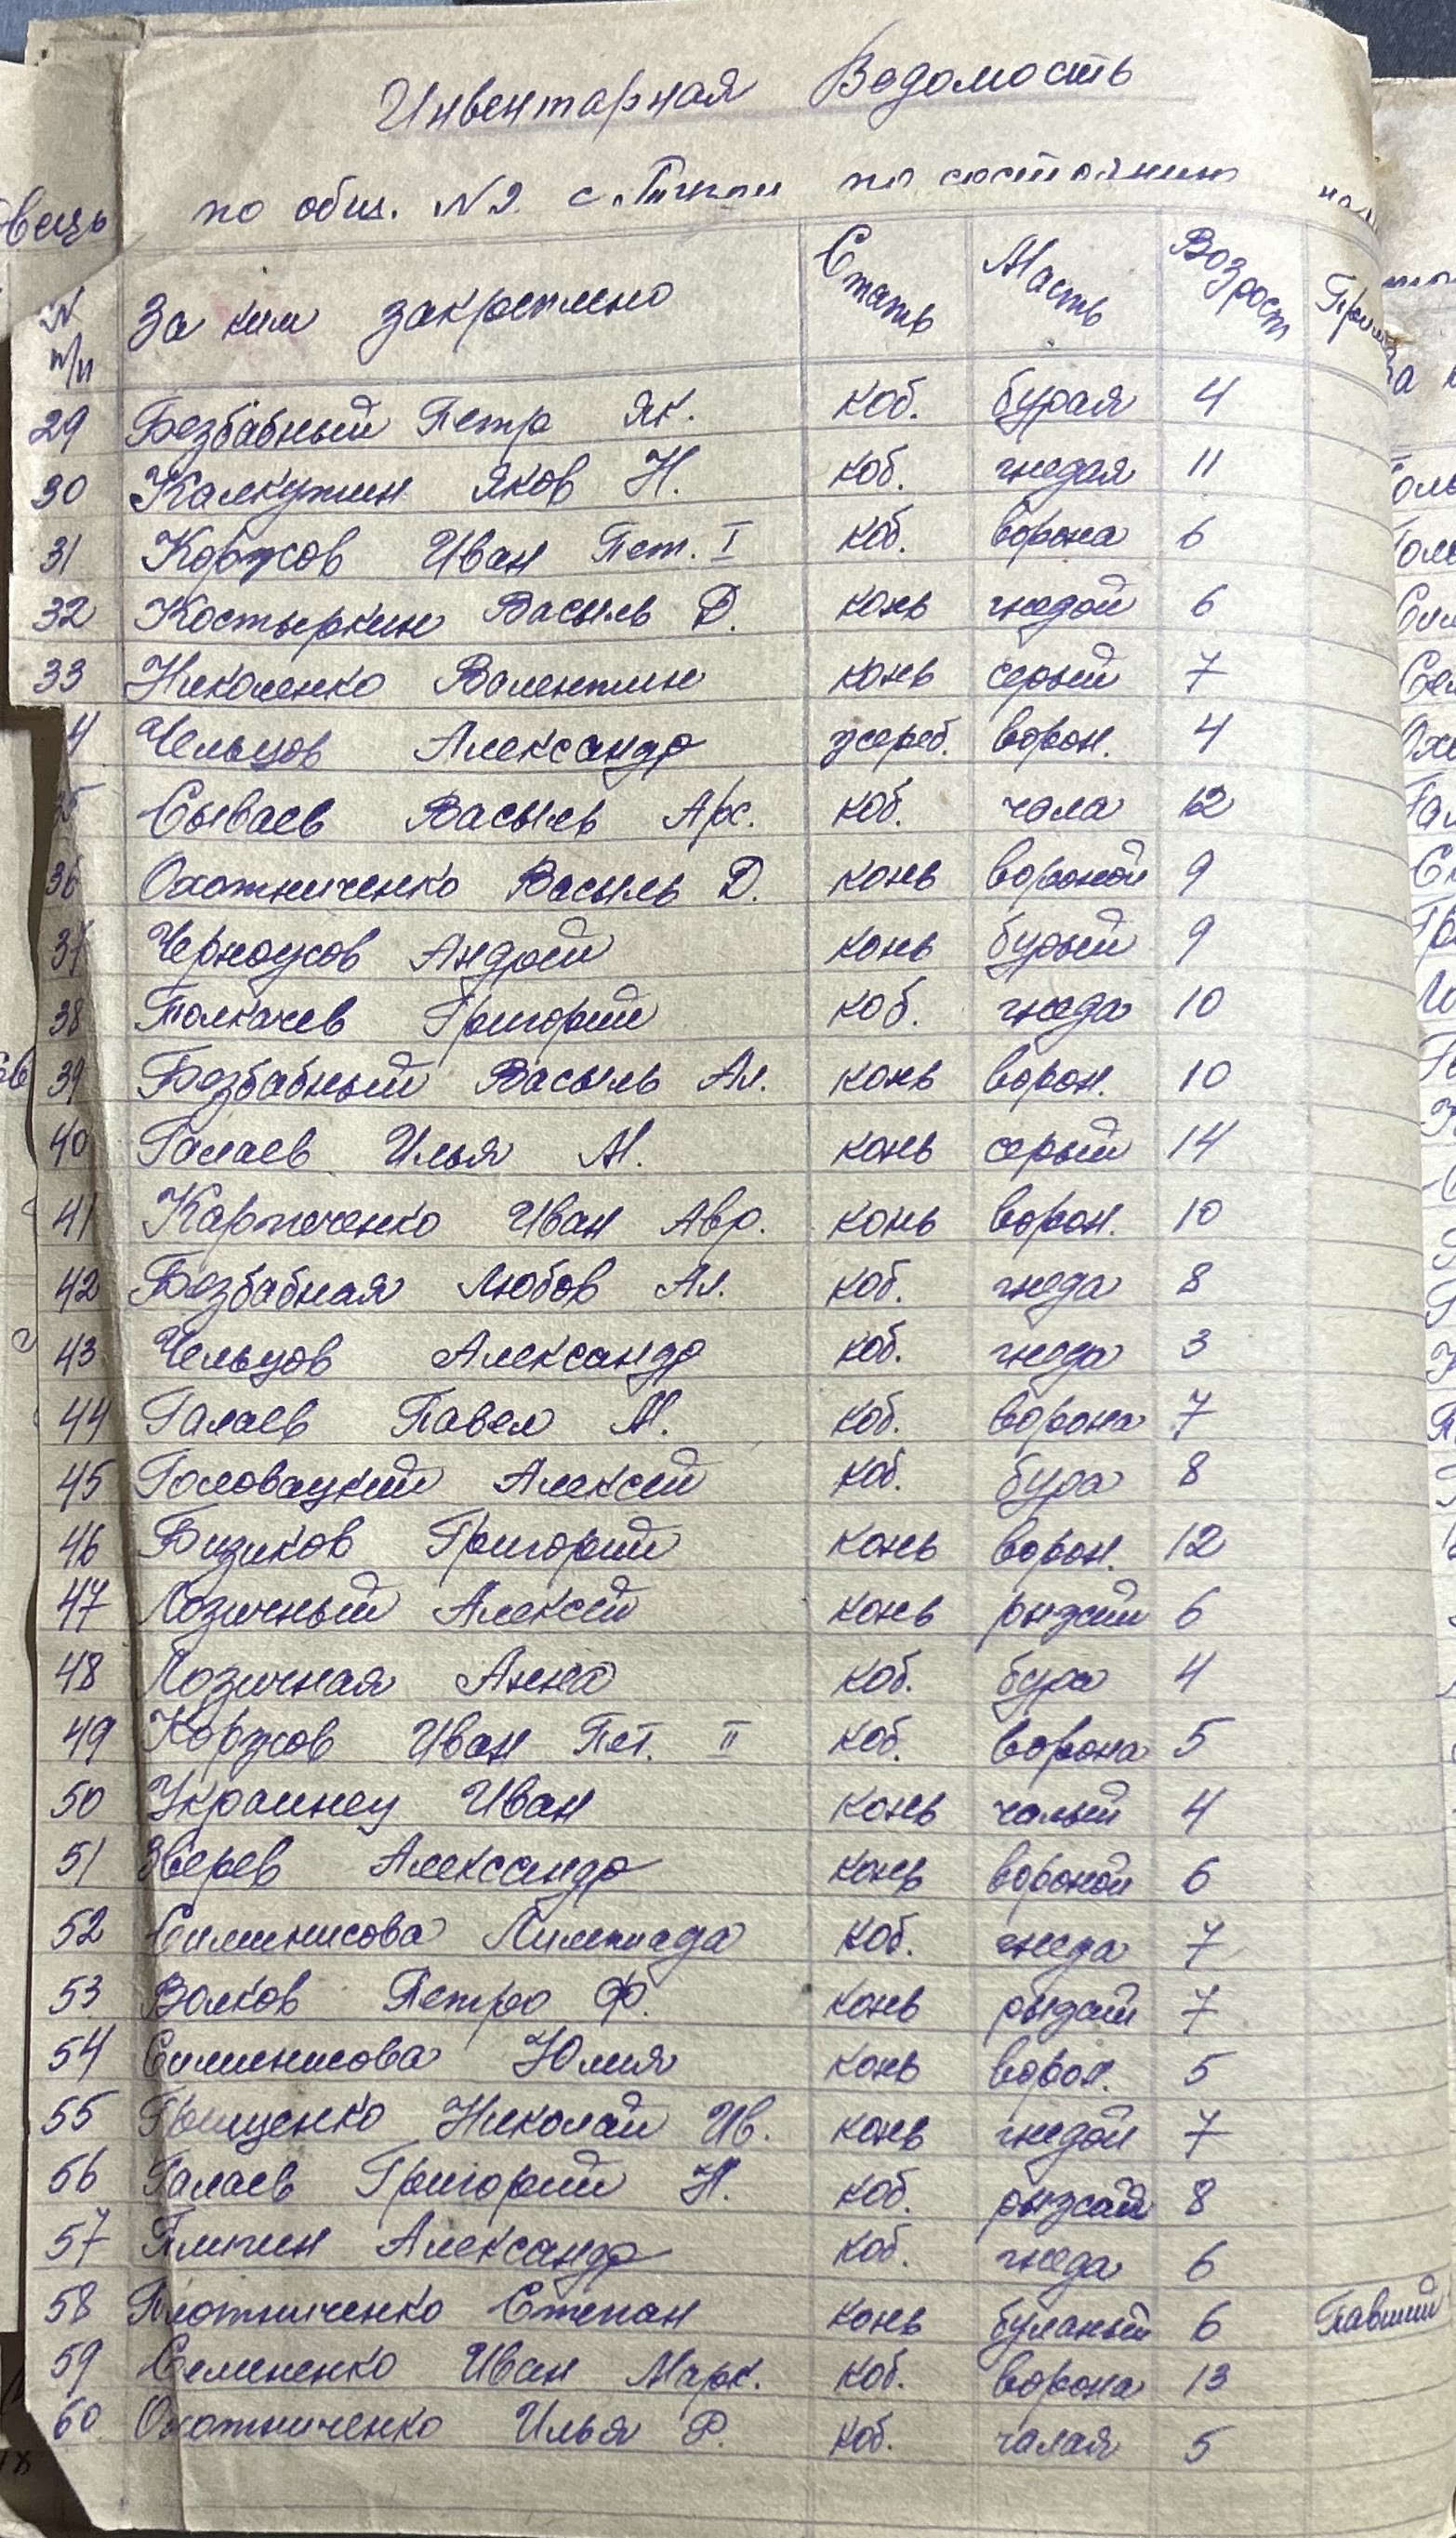 Инвентарная Ведомость
по общ. №2 по состоянию на
N п/п За ким закреплено Стать Масть Возрост
29 Безбабный Петр Як. коб. бурая 4
30 Калкутин Яков Н. коб. гнедая 11
31 Коржов Иван Пет. I коб. ворона 6
32 Костыркин Васыль Д. конь гнедой 6
33 Николенко Валентин конь серый 7
4 Чельцов Александр жереб. ворон. 4
Сываев Васыль Арх. коб. чала 12
36 Охотниченко Васыль Д. конь вороной 9
37 Черноусов Андрей конь бурый 9
38 Толкачев Григорий коб. гнеда 10
39 Безбабный Васыль Ал. конь ворон. 10
40 Галаев Илья М. конь серый 14
41 Карпоченко Иван Авр. конь ворон. 10
42 Безбабная Любов Ал. коб. гнеда 8
43 Чельцов Александр коб. гнеда 3
44 Галаев Павел М. коб. ворона 7
45 Головацкий Алексей коб. бура 8
46 Бизиков Григорий конь ворон. 12
47 Лозичный Алексей конь рыжий 6
48 Лозичная Анна коб. бура 4
49 Коржов Иван Пет. II коб. ворона 5
50 Украинец Иван конь чалый 4
51 Зверев Александр конь вороной 6
52 Лимпиада коб. гнеда 7
53 Волков Петро Ф. конь рыжий 7
54 Юлия конь ворон. 5
55 Грищенко Николай Ив. конь гнедой 7
56 Галаев Григорий Н. коб. рыжай 8
57 Александр коб. гнеда 6
58 Плотниченко Степан конь буланый 6 Павший
59 Семененко Иван Марк. коб. ворона 13
60 Охотниченко Илья Р. коб. чалая 5